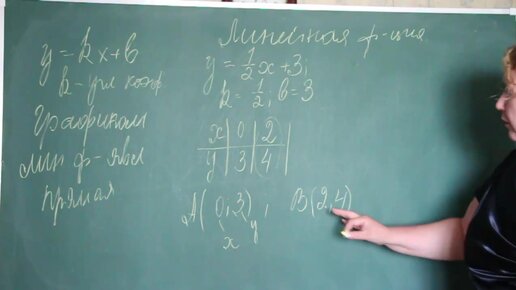 Линейная ф-ция
y = kx + b
k - угл коэф
Графиком
лин ф-явл
прямая
y = 1/2 x + 3;
k = 1/2; b = 3
x | 0 | 2 |
y | 3 | 4 |
A(0, 3), B(2, 4)
x y